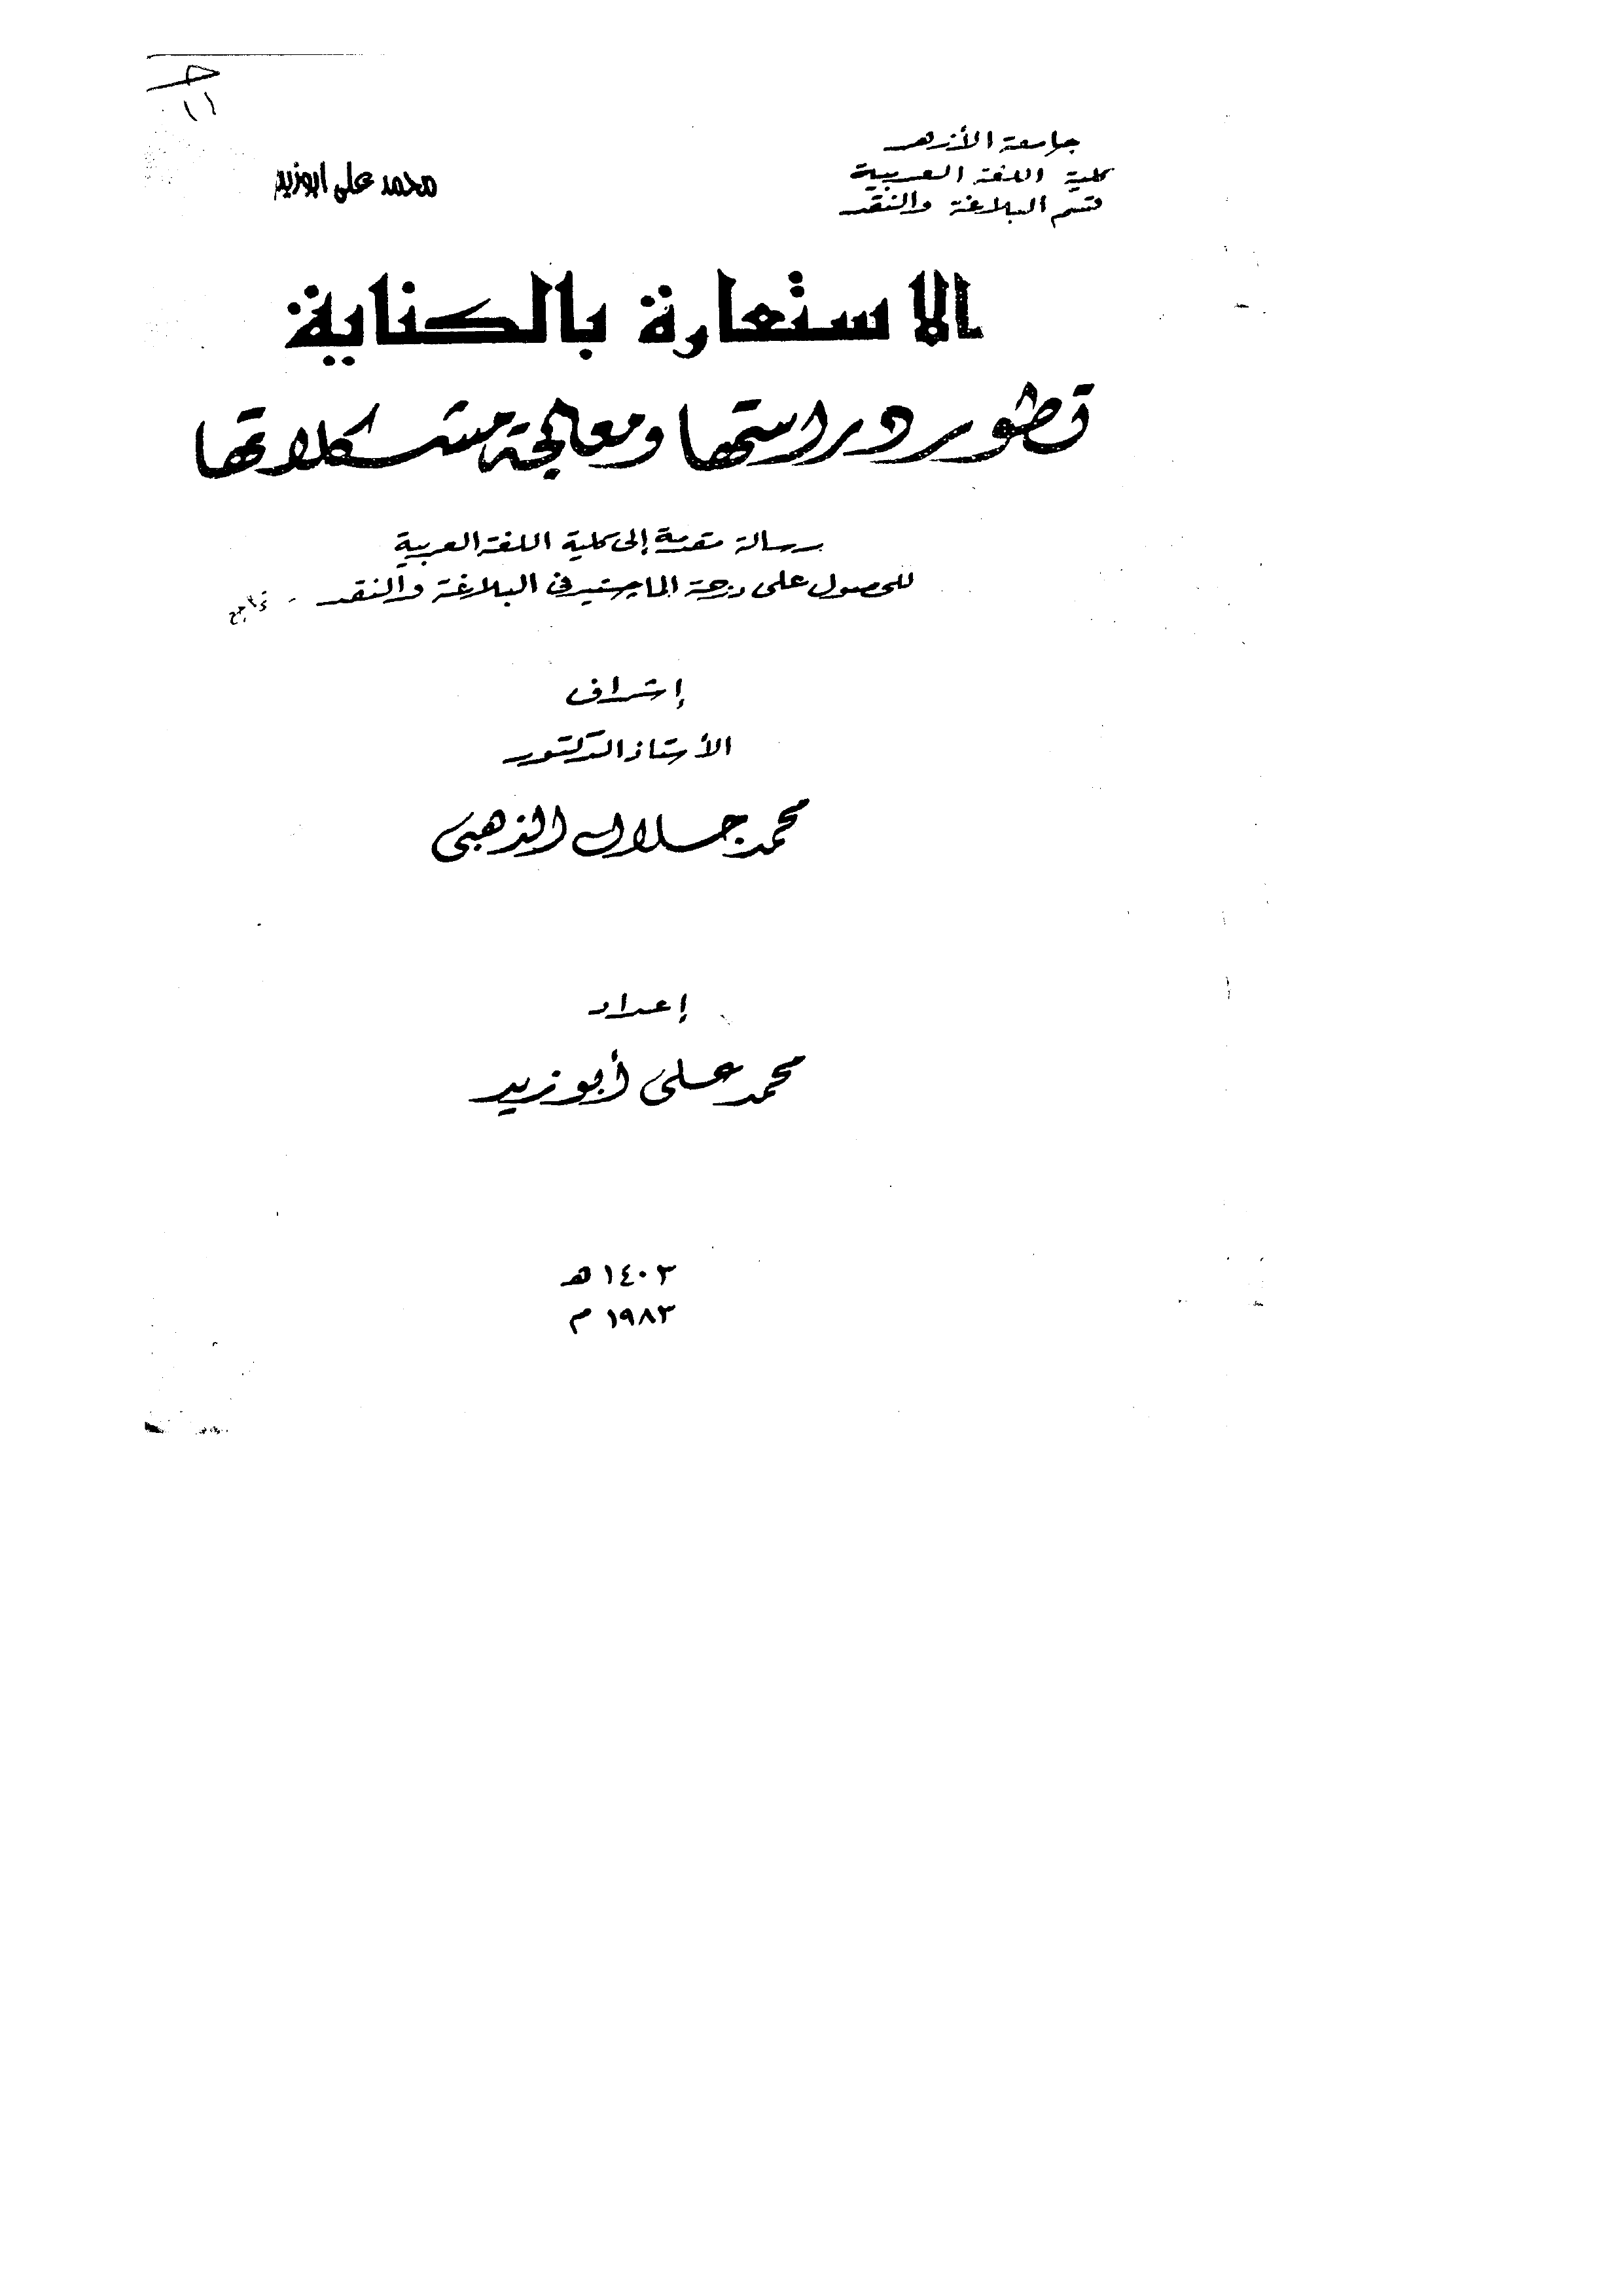 جامعة الأزهر
كلية اللغة العربية
قسم البلاغة والنقد
محمد على ابوزيد
الاستعارة بالكناية
تطور دراستها ومعالجة مشكلاتها
رسالة مقدمة إلى كلية اللغة العربية
للحصول على درجة الماجستير فى البلاغة والنقد
إشراف
الأستاذ الدكتور
محمد جلال الذهبى
إعداد
محمد على أبو زيد
١٤٠٣ هـ
١٩٨٣ م